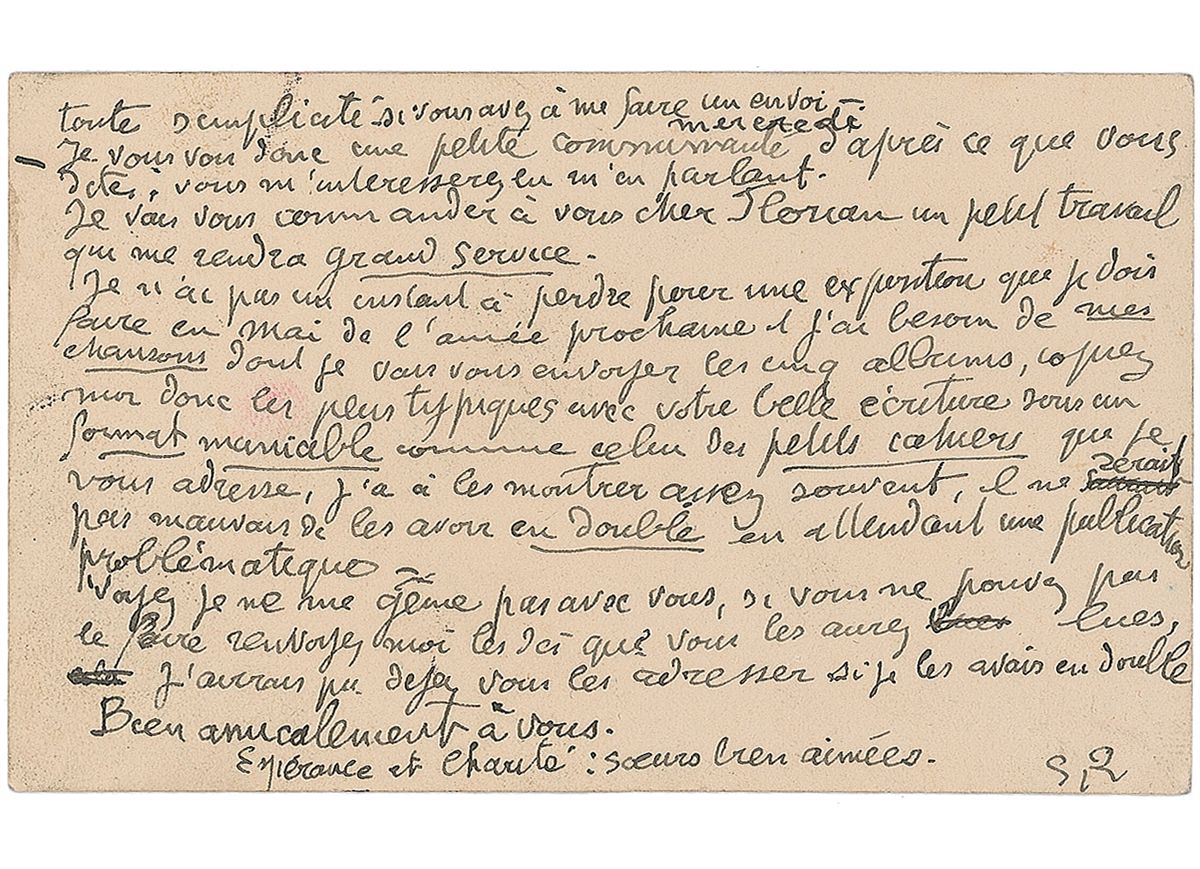 toute simplicité si vous avez à me faire un envoi.
mercredi
Je vous vois donc une petite communauté d'après ce que vous
dites; vous m'interesserez en m'en parlant.
Je vais vous commander à vous cher Florian un petit travail
qui me rendra grand service.
Je n'ai pas un instant à perdre pour une exposition que je dois
faire en mai de l'année prochaine et j'ai besoin de mes
chansons dont je vais vous envoyer les cinq albums, copiez
moi donc les plus typiques avec votre belle écriture sous un
format maniable comme celui des petits cahiers que je
vous adresse, j'a à les montrer assez souvent, il ne serait
pas mauvais de les avoir en double en attendant une publication
problématique
Voyez je ne me gêne pas avec vous, si vous ne pouvez pas
le faire renvoyez moi les dès que vous les aurez lues,
J'aurais pu dejà vous les adresser si je les avais en double
Bien amicalement à vous.
Espérance et Charité : sœurs bien aimées.